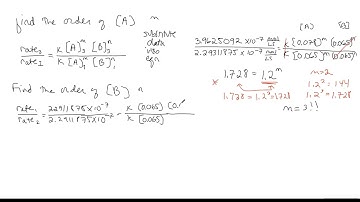 find the order of [A] m
rate₂ / rate₁ = K [A]₂ᵐ [B]₂ⁿ / K [A]₁ᵐ [B]₁ⁿ
substitute
data
into
eqn
[A] [B]
3.9625092 ×10⁻⁷ mol/LS / 2.2911875×10⁻⁷ mol/LS = K [0.078]ᵐ (0.065)ⁿ / K [0.065]ᵐ (0.065)ⁿ
1.728 = 1.2ᵐ
* 1.728 = 1.2³ = 1.728
m=2
1.2² = 1.44
1.2³ = 1.728
m = 3!!
Find the order of [B] n
rate₁ / rate₂ = 2.2911875×10⁻⁷ / 2.2911875×10⁻⁷ = K (0.065) (0. / K [0.065)